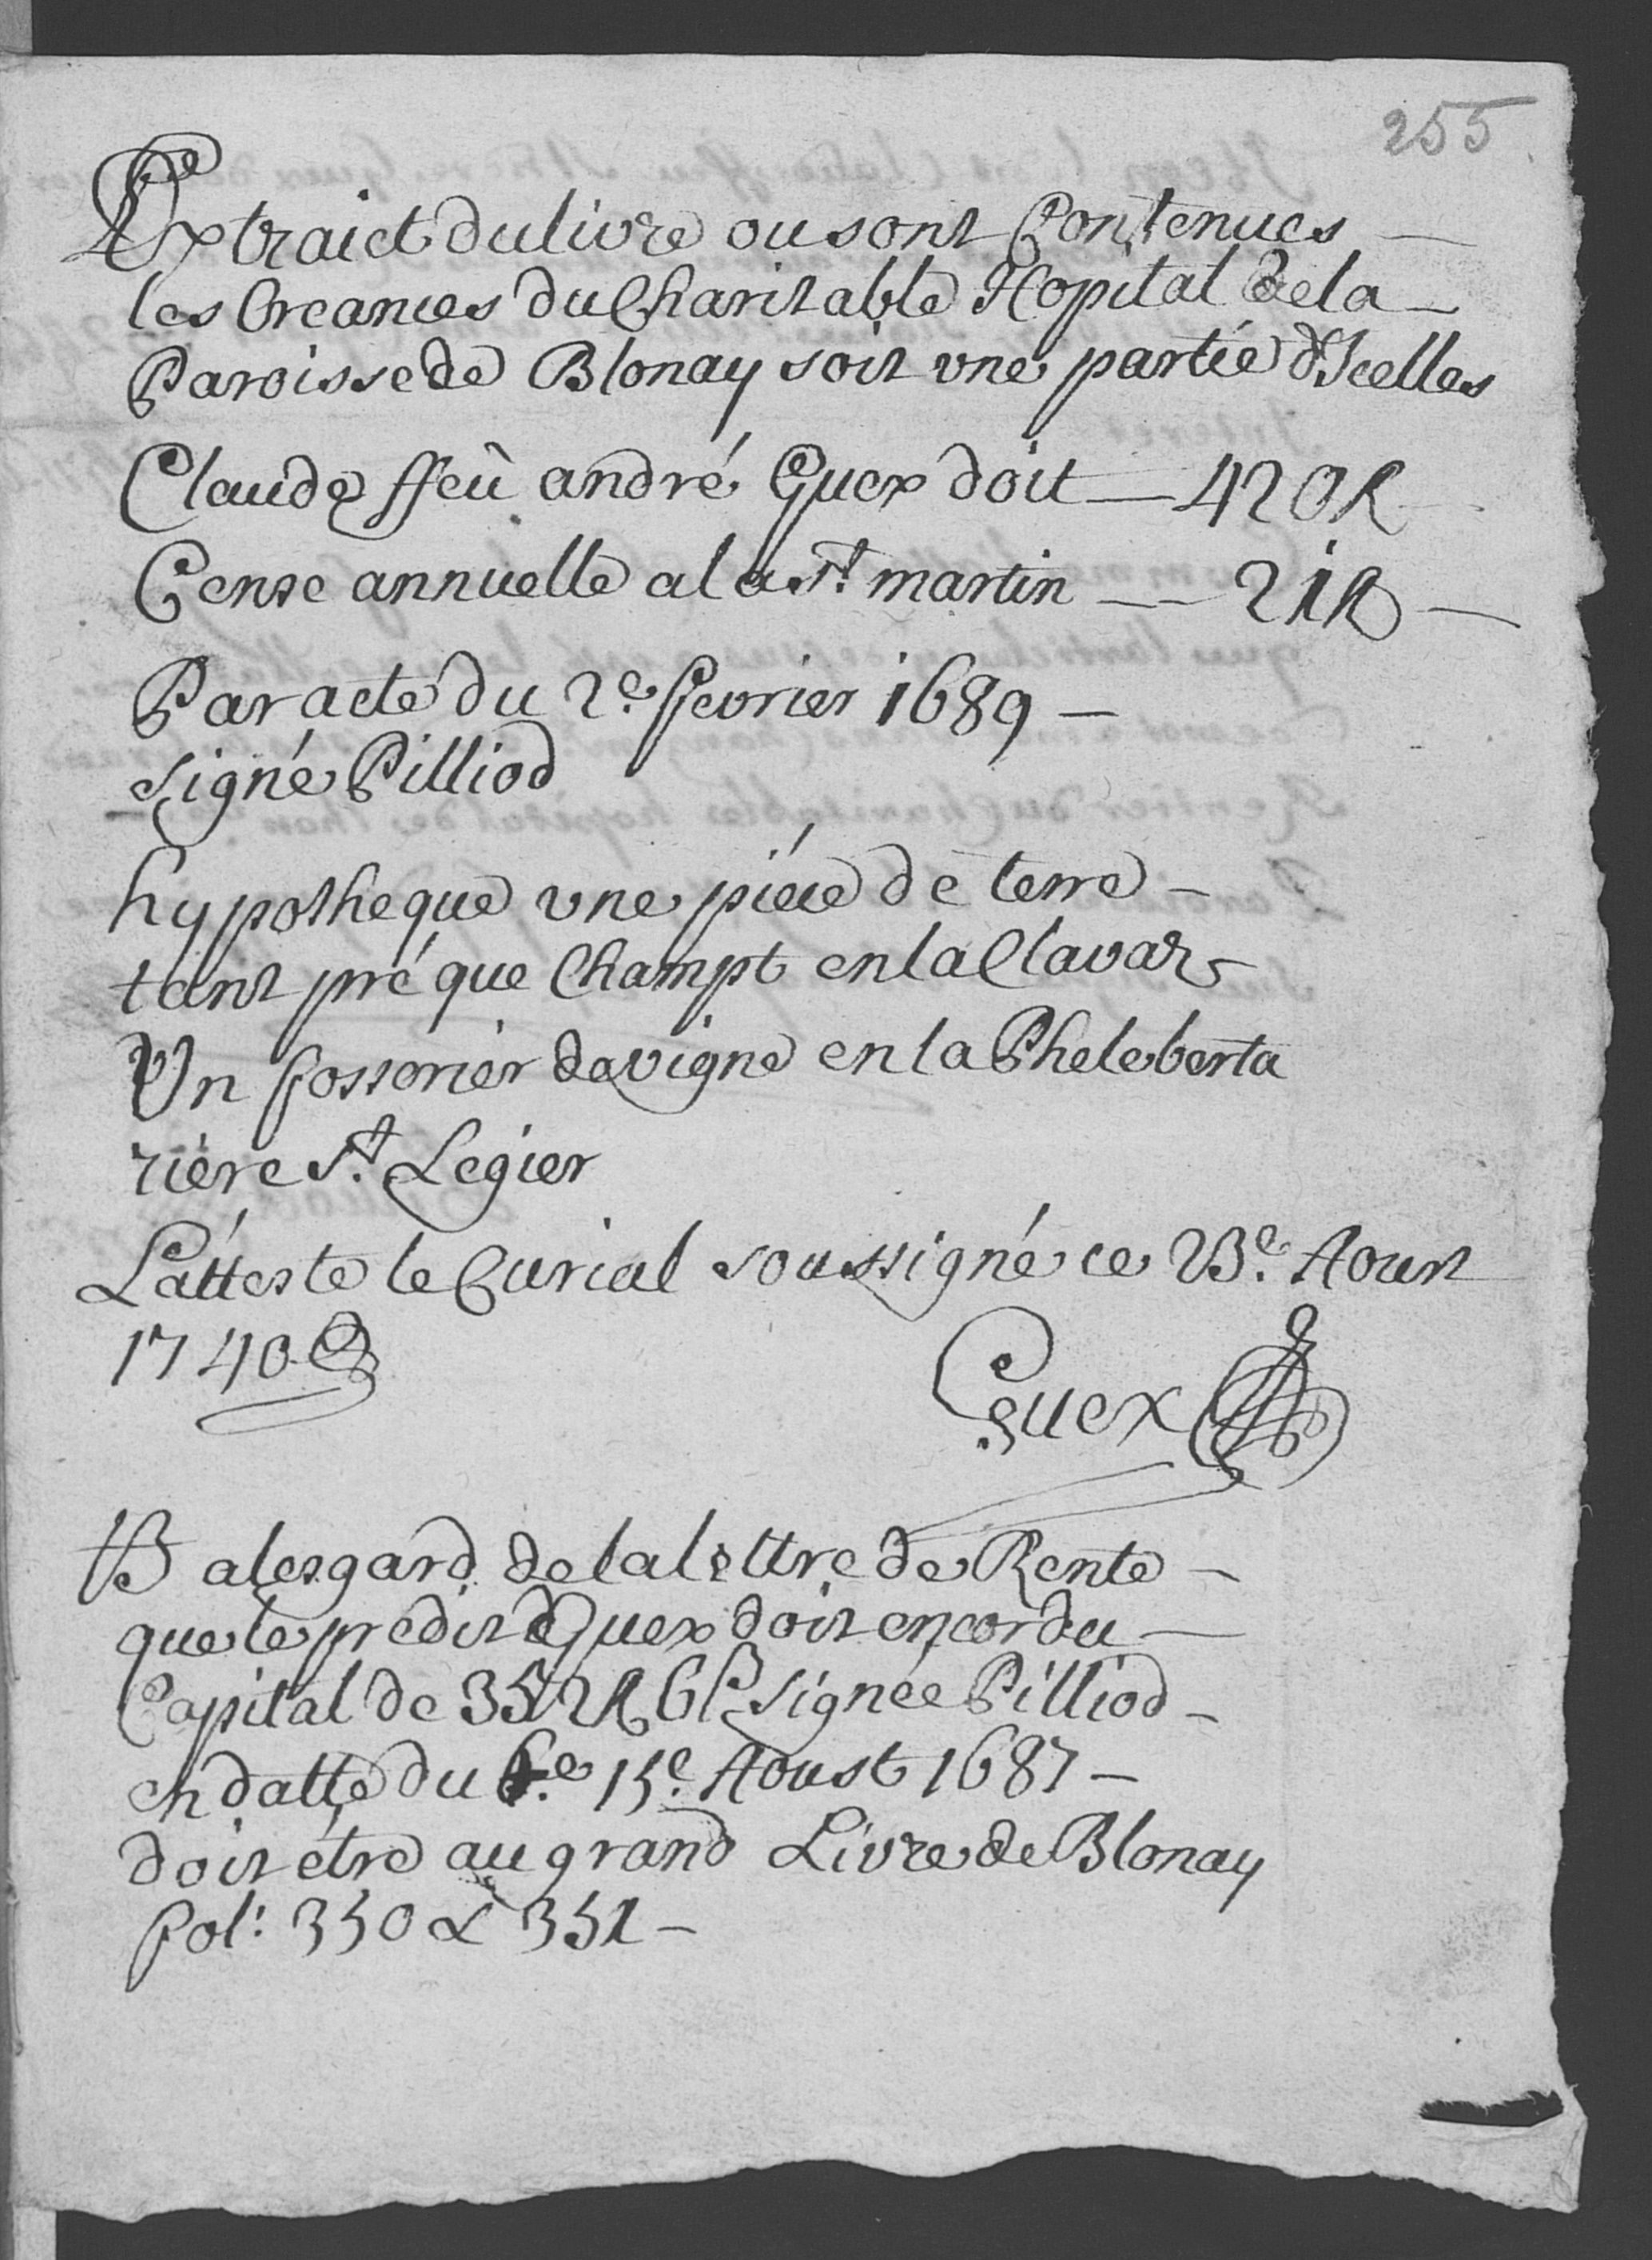 255
Extraict du livre ou sont Contenues
les Creances du Charitable Hopital de la
Paroisse de Blonay soit une partie d'Icelles
Claude ffeu andré Guex doit — 420 ℔
Cense annuelle a la St. martin — 21 ℔ —
Par acte du 2e. fevrier 1689 —
signé Pilliod
hypotheque une piéce de terre —
tant pré que Champt en la Clavar
Un fossorier de vigne en la Pheleberta
riere St. Legier
L'atteste le Curial soussigné ce 23e. Aoust
1740
Guex
NB a lesgard de la lettre de Rente —
que le predit Guex doit encor du —
Capital de 352 ℔ 6 ß signée Pilliod —
en datte du 15e. Aoust 1687 —
doit étre au grand Livre de Blonay
fol: 350 & 351 —